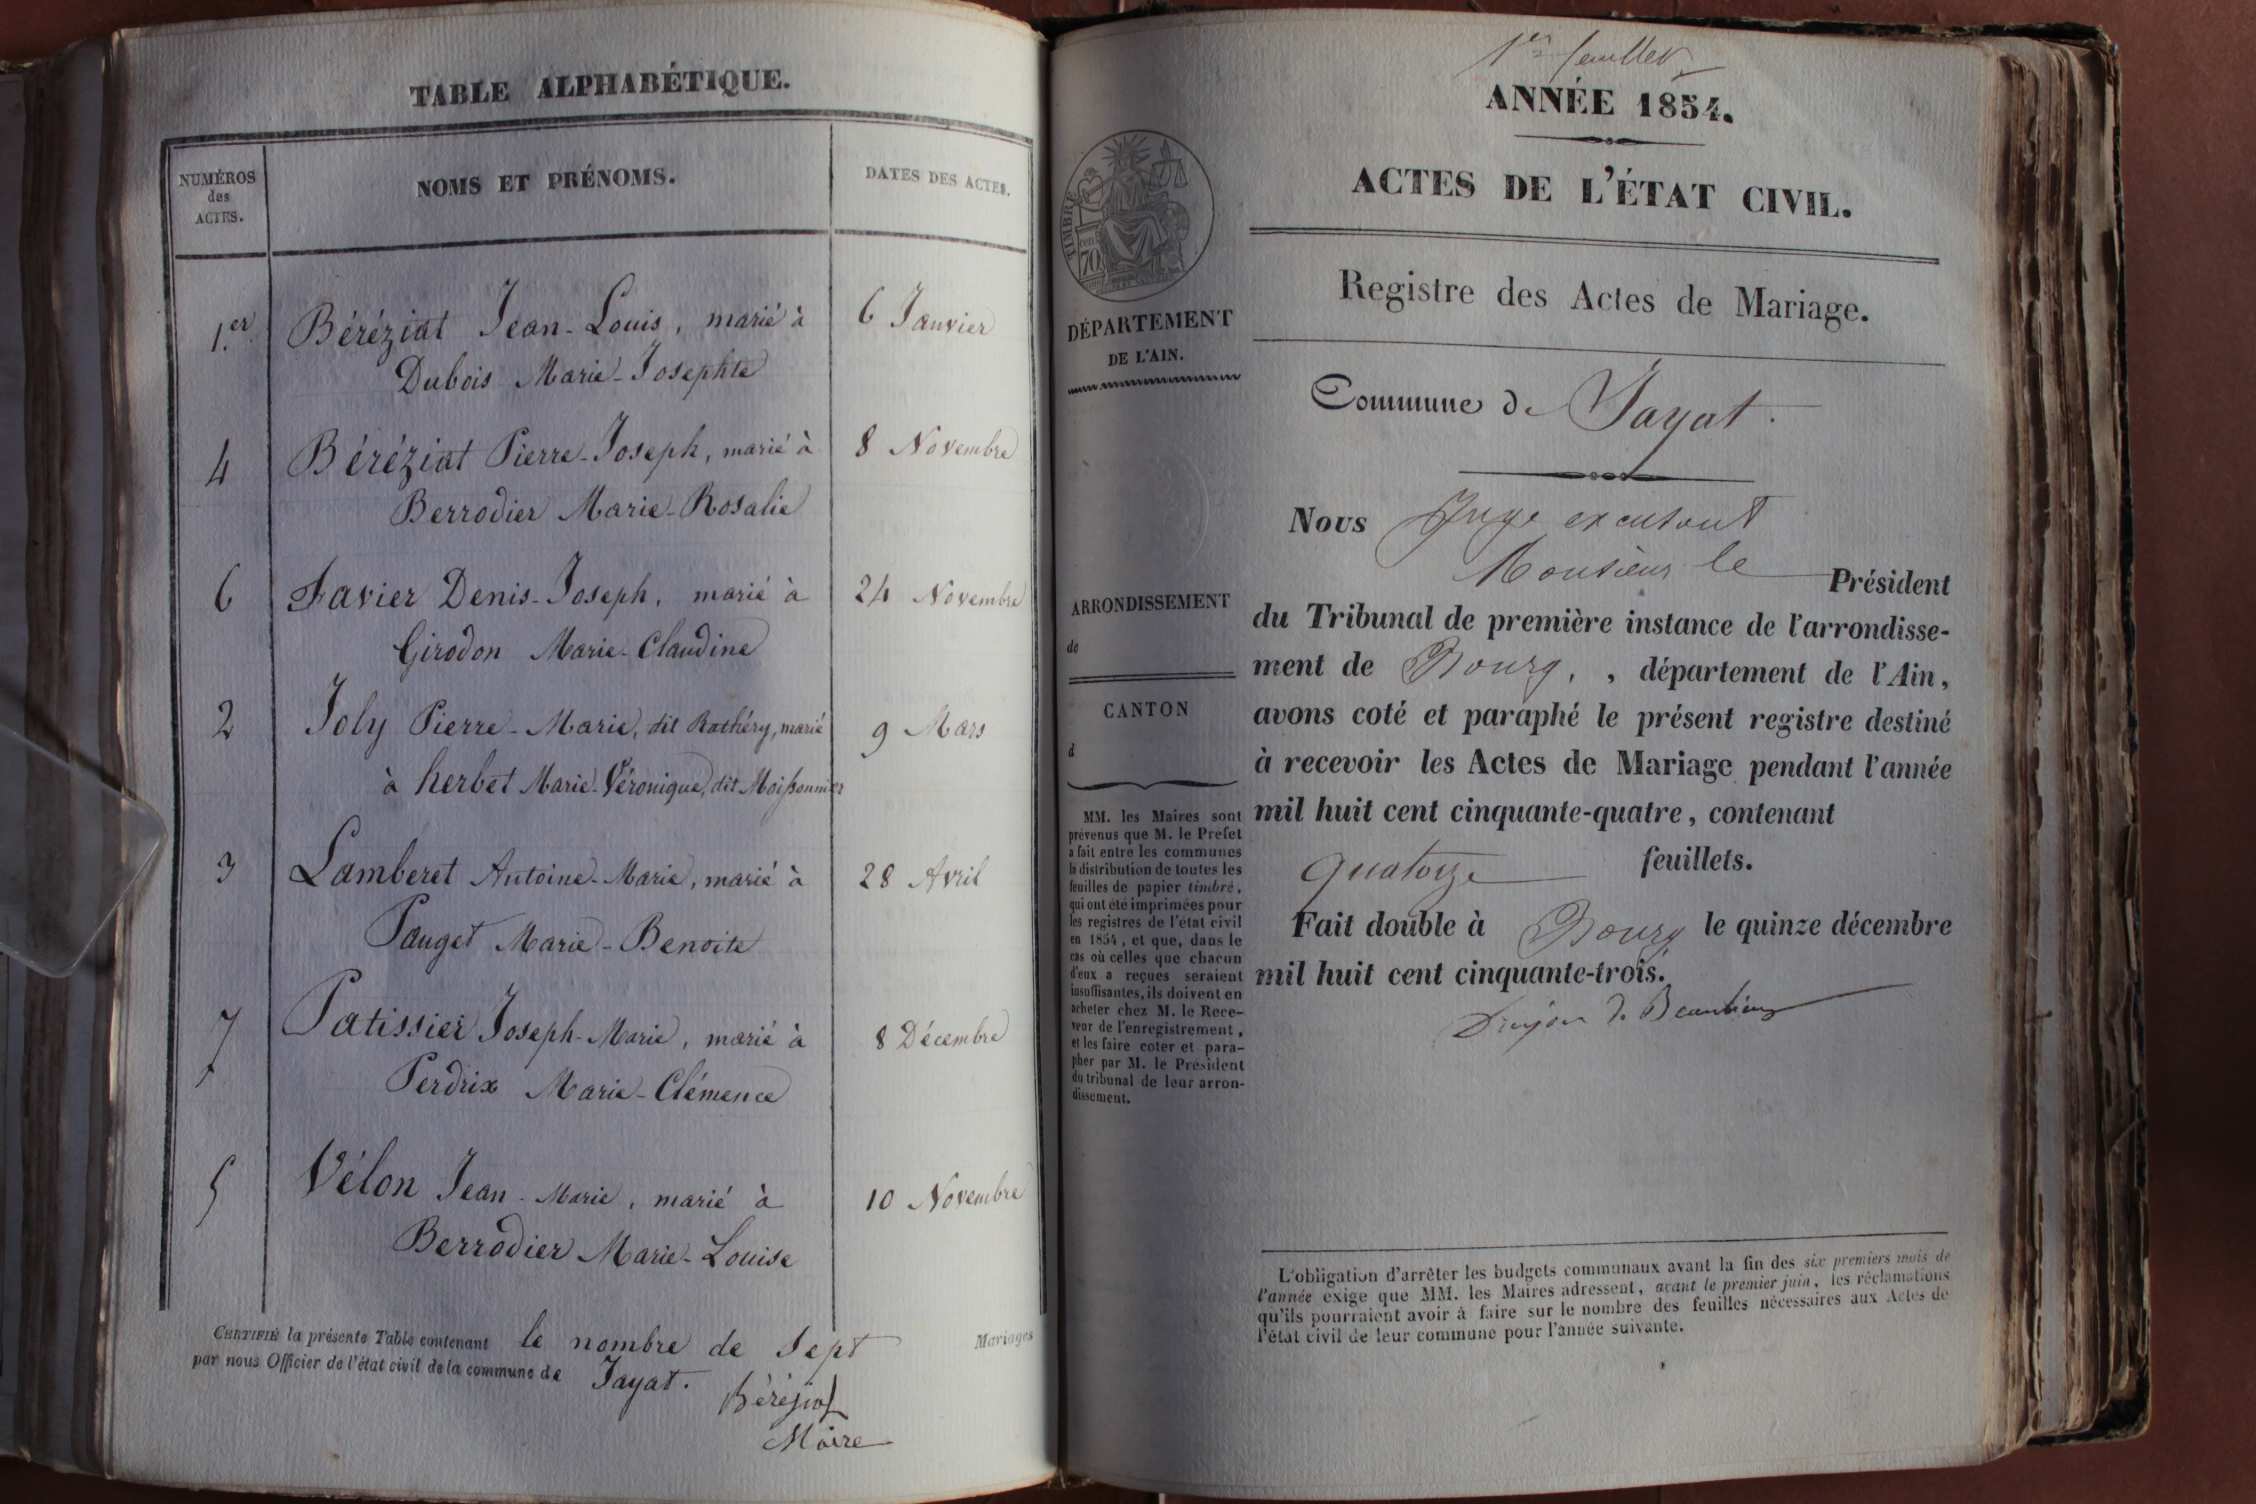 TABLE ALPHABÉTIQUE.
NUMÉROS
des
ACTES.
NOMS ET PRÉNOMS.
DATES DES ACTES.
1.er Béréziat Jean-Louis, marié à 6 Janvier
Dubois Marie-Josephte
4 Béréziat Pierre-Joseph, marié à 8 Novembre
Berrodier Marie-Rosalie
6 Favier Denis-Joseph, marié à 24 Novembre
Girodon Marie-Claudine
2 Joly Pierre-Marie, dit Rathéry, marié 9 Mars
à herbet Marie-Véronique, dit Moissonnier
3 Lamberet Antoine-Marie, marié à 28 Avril
Pauget Marie-Benoite
7 Patissier Joseph-Marie, marié à 8 Décembre
Perdrix Marie-Clémence
5 Vélon Jean-Marie, marié à 10 Novembre
Berrodier Marie-Louise
CERTIFIÉ la présente Table contenant le nombre de Sept Mariages
par nous Officier de l'état civil de la commune de Jayat.
Béréziat
Maire
1er feuillet
ANNÉE 1854.
ACTES DE L'ÉTAT CIVIL.
Registre des Actes de Mariage.
TIMBRE
70
cen
DÉPARTEMENT
DE L'AIN.
ARRONDISSEMENT
de
CANTON
d
MM. les Maires sont
prévenus que M. le Préfet
a fait entre les communes
la distribution de toutes les
feuilles de papier timbré,
qui ont été imprimées pour
les registres de l'état civil
en 1854, et que, dans le
cas où celles que chacun
d'eux a reçues seraient
insuffisantes, ils doivent en
acheter chez M. le Rece-
veur de l'enregistrement,
et les faire coter et para-
pher par M. le Président
du tribunal de leur arron-
dissement.
Commune de Jayat.
Nous Juge
Monsieur le Président
du Tribunal de première instance de l'arrondisse-
ment de Bourg, , département de l'Ain,
avons coté et paraphé le présent registre destiné
à recevoir les Actes de Mariage pendant l'année
mil huit cent cinquante-quatre, contenant
quatorze feuillets.
Fait double à Bourg le quinze décembre
mil huit cent cinquante-trois.
L'obligation d'arrêter les budgets communaux avant la fin des six premiers mois de
l'année exige que MM. les Maires adressent, avant le premier juin, les réclamations
qu'ils pourraient avoir à faire sur le nombre des feuilles nécessaires aux Actes de
l'état civil de leur commune pour l'année suivante.